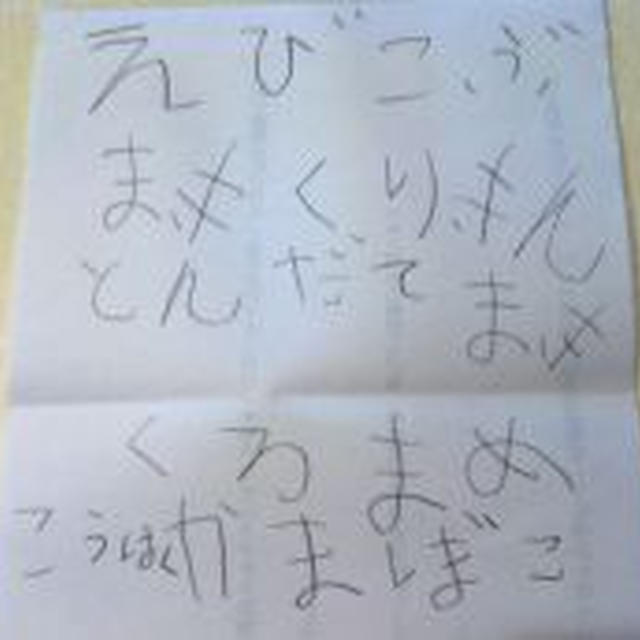 えび こぶ
まき くりきん
とん だて
まき
くろまめ
こうはくかまぼこ